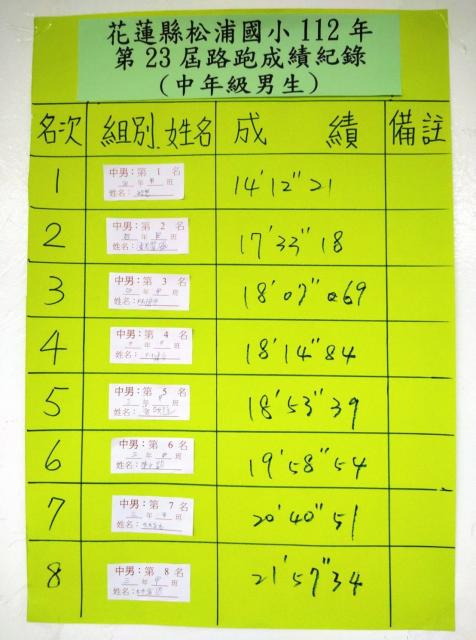 花蓮縣松浦國小112年
第23屆路跑成績紀錄
(中年級男生)
名次 組別.姓名 成績 備註
1 中男：第 1 名 14'12"21
年 甲 班
姓名：
2 中男：第 2 名 17'33"18
年 班
姓名：
3 中男：第 3 名 18'07"069
年 甲 班
姓名：
4 中男：第 4 名 18'14"84
年 班
姓名：
5 中男：第 5 名 18'53"39
三 年 甲 班
姓名：
6 中男：第 6 名 19'58"54
三 年 甲 班
姓名：
7 中男：第 7 名 20'40"51
三 年 甲 班
姓名：
8 中男：第 8 名 21'57"34
三 年 甲 班
姓名：